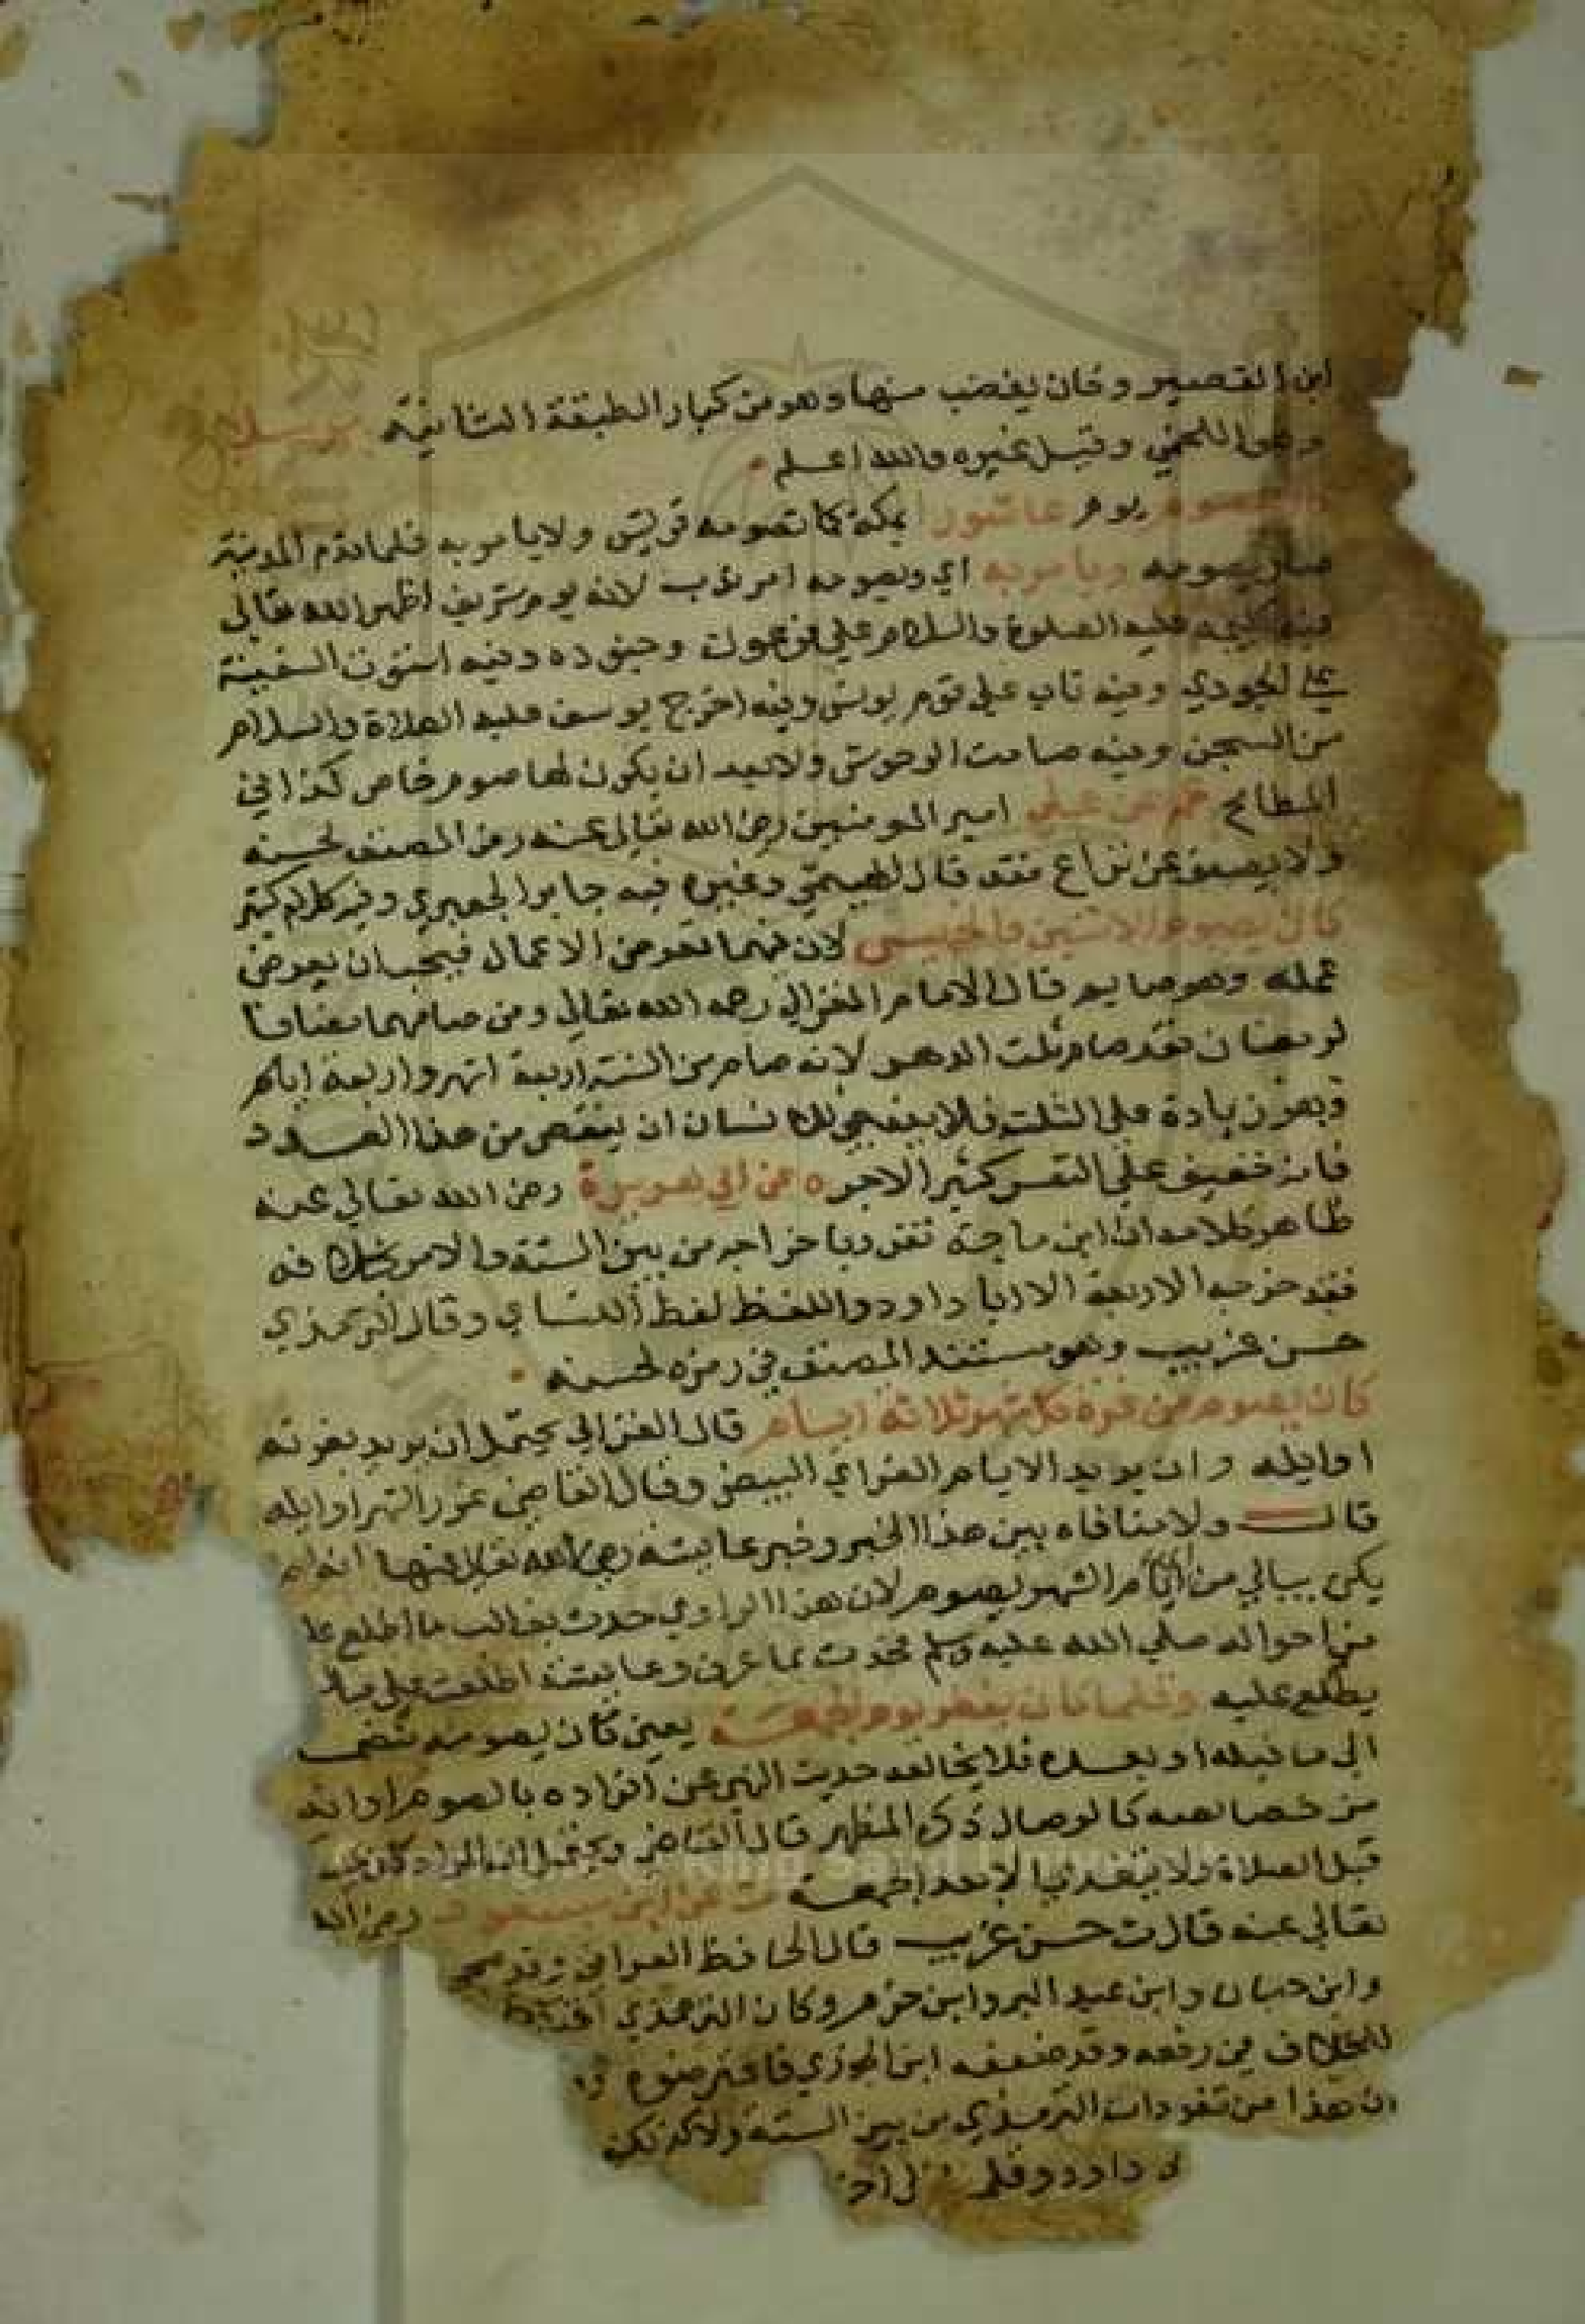 ابن القصير وكان يغضب منها وهو من كبار الطبقة الثانية مرسلا
وهو اللخمي وقيل غيره والله اعلم
يوم عاشورا بمكة كما تصومه قريش ولا يامر به فلما قدم المدينة
صار يصومه ويامر به اي وبصومه امر ندب لانه يوم شريف اظهر الله تعالى
فيه كليمه عليه الصلوة والسلام علي فرعون وجنوده وفيه استوت السفينة
على الجودي وفيه تاب علي قوم يونس وفيه اخرج يوسف عليه الصلاة والسلام
من السجن وفيه صامت الوحوش ولا بعد ان يكون لها صوم خاص كذا في
المطامح حم عن علي امير المومنين رضي الله تعالى عنه رمز المصنف لحسنه
ولا يصفو عن نزاع فقد قال الهيثمي وغيره فيه جابر الجعفي وفيه كلام كثير
كان يصوم الاثنين والخميس لان فيهما تعرض الاعمال فيحب ان يعرض
عمله وهو صايم قال الامام الغزالي رحمه الله تعالي ومن صامهما مضافا
لرمضان فقد صام ثلث الدهر لانه صام من السنة اربعة اشهر واربعة ايام
وهو زيادة على الثلث فلا ينبغي للانسان ان ينقص من هذا العدد
فانه خفيف علي النفس كثير الاجر ه عن ابي هريرة رضي الله تعالي عنه
ظاهر كلامه ان ابن ماجة تفرد باخراجه من بين الستة والامر بخلافه
فقد خرجه الاربعة الا ابا داود واللفظ لفظ النساي وقال الترمذي
حسن غريب وهو مستند المصنف في رمزه لحسنه
كان يصوم من غرة كل شهر ثلاثة ايام قال الغزالي يحتمل ان يريد بغرته
اوايله وان يريد الايام الغر اي البيض وقال القاضي غرر الشهر اوايله
قال ولا منافاه بين هذا الخبر وخبر عايشة رضي الله تعالى عنها انه لم
يكن يبالي من اي ايام الشهر يصوم لان هذا الراوي حدث بغالب ما اطلع عليه
من احواله صلي الله عليه وسلم فحدث بما عرف وعايشة اطلعت علي ما لم
يطلع عليه وقلما كان يفطر يوم الجمعة يعني كان يصومه منضما
الى ما قبله او بعده فلا يخالفه حديث النهي عن افراده بالصوم او انه
من خصائصه كالوصال ذكره المظهر قال القاضي ويحتمل ان المراد كان
قبل الصلاة ولا يتغدى الا بعد الجمعة ت عن ابن مسعود رضي الله
تعالي عنه قال ت حسن غريب قال الحافظ العراقي وقد صححه
وابن حبان وابن عبد البر وابن حزم وكان الترمذي
للخلاف في رفعه وقد ضعفه ابن الجوزي فاعترضوه
ان هذا من تفردات الترمذي من بين الستة ولا كذلك
داود وقلما